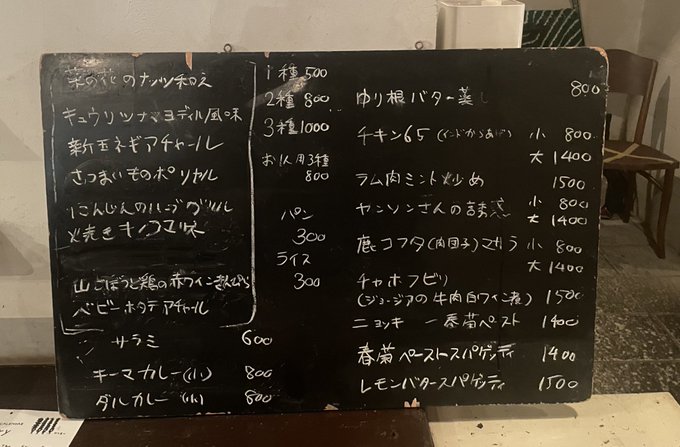 菜の花のナッツ和え
キュウリツナマヨディル風味
新玉ネギアチャール
さつまいものポリヤル
にんじんのハーブグリル
火焼きキノコマリネ
山ごぼうと鶏の赤ワインきんぴら
ベビーホタテアチャール
サラミ 600
キーマカレー(小) 800
ダルカレー(小) 800
1種 500
2種 800
3種 1000
お1人用3種
800
パン
300
ライス
300
ゆり根バター蒸し 800
チキン65(インドからあげ) 小 800
大 1400
ラム肉ミント炒め 1500
ヤンソンさんの誘惑 小 800
大 1400
鹿コフタ(肉団子)マサラ 小 800
大 1400
チャホフビリ
(ジョージアの牛肉白ワイン煮) 1500
ニョッキ 春菊ペースト 1400
春菊ペーストスパゲッティ 1400
レモンバタースパゲッティ 1500